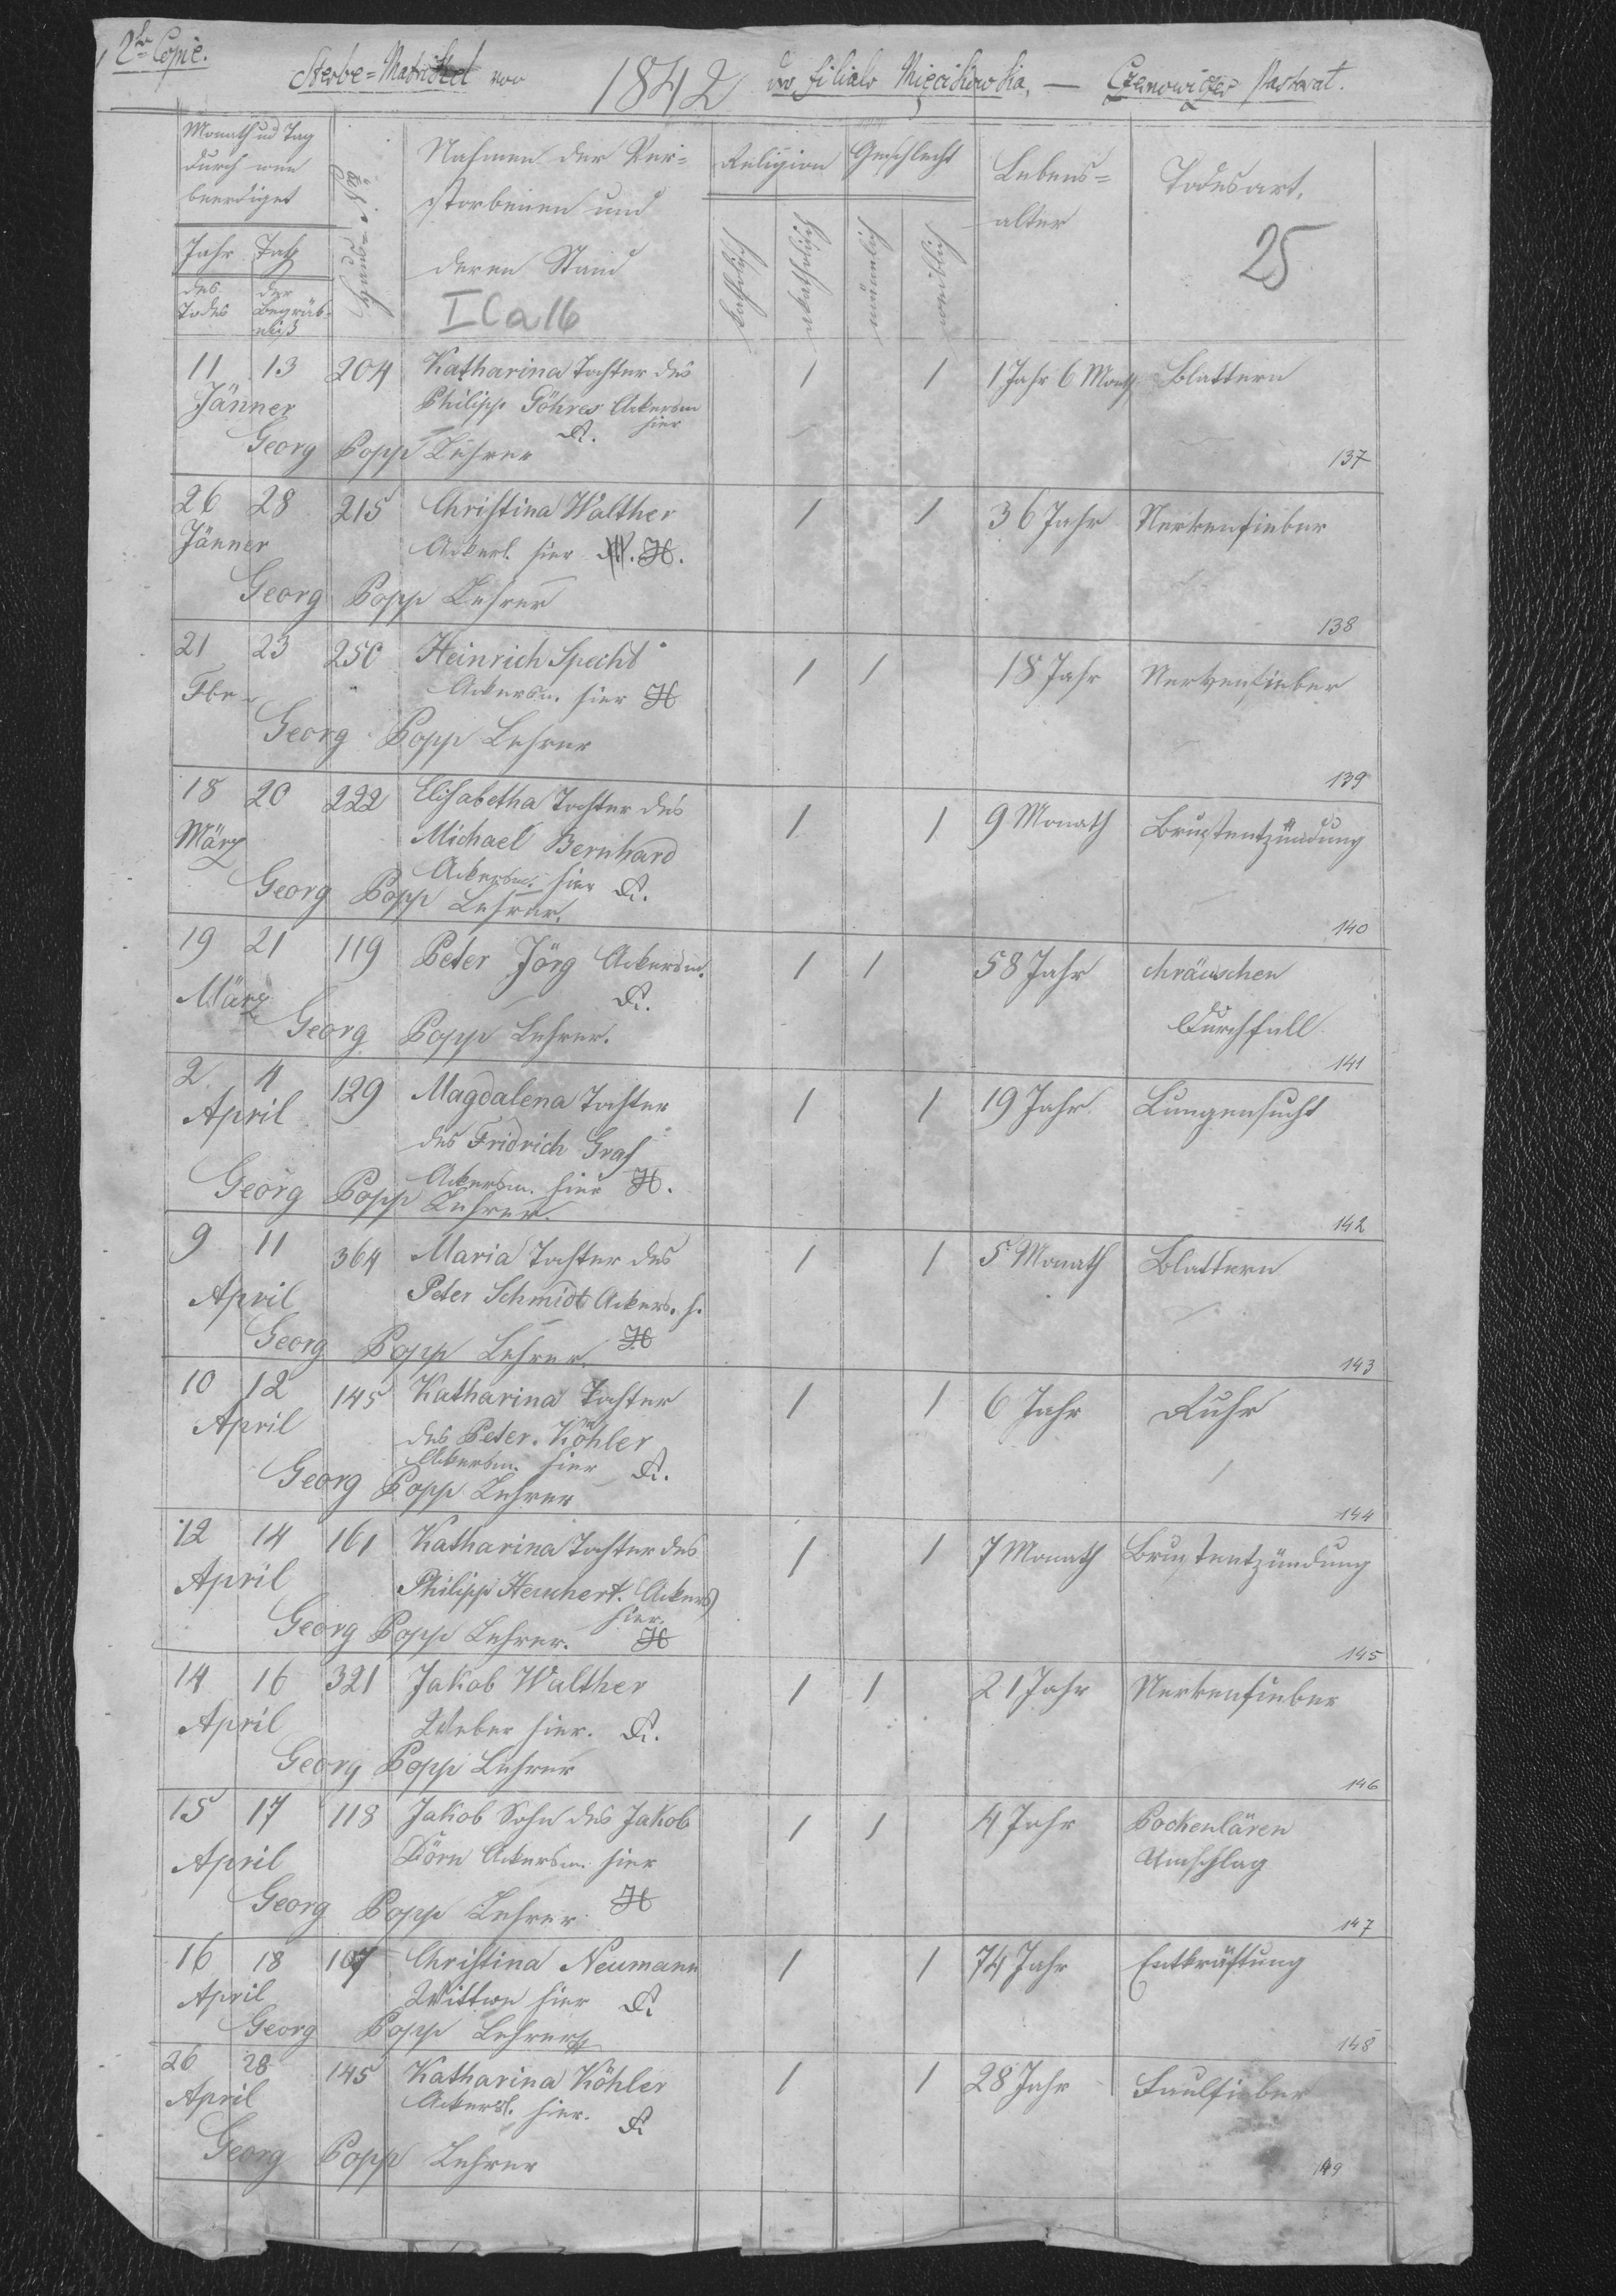 2te Copie.
Sterbe=Matrickel von 1842 der Filiale Mięcikowka, — Czernowitzer Pastorat.
Monath ud Tag
durch wen
beerdiget
Jahr Tag
des Todes
der Begräb-
niß
Haus No
Nahmen der Ver=
storbenen und
deren Stand
I C a 16
Religion
Geschlecht
katholisch
akatholisch
männlich
weiblich
Lebens=
alter
Todesart.
25
11 13 204 Katharina Tochter des 1 1 1 Jahr 6 Month Blattern
Jänner Philipp Göhres Ackersm
hier
Georg Popp Lehrer
137
26 28 215 Christina Walther 1 1 36 Jahr Nervenfieber
Jänner Ackerl. hier H.
Georg Popp Lehrer
138
21 23 250 Heinrich Specht 1 1 18 Jahr Nervenfieber
Fbr Ackersm. hier H
Georg Popp Lehrer
139
18 20 222 Elisabetha Tochter des 1 1 9 Monath Brustentzündung
März Michael Bernhard
Ackersm. hier R.
Georg Popp Lehrer.
140
19 21 119 Peter Jörg Ackersm. 1 1 58 Jahr chränschen
März R. Durchfall
Georg Popp Lehrer.
141
2 4 129 Magdalena Tochter 1 1 19 Jahr Lungensucht
April des Fridrich Graf
Ackersm. hier H.
Georg Popp Lehrer.
142
9 11 364 Maria Tochter des 1 1 5 Monath Blattern
April Peter Schmidt Ackers. h.
Georg Popp Lehrer. H
143
10 12 145 Katharina Tochter 1 1 6 Jahr Ruhr
April des Peter Köhler
Ackersm. hier R.
Georg Popp Lehrer
144
12 14 161 Katharina Tochter des 1 1 7 Monath Brustentzündung
April Philipp Ackers
hier.
Georg Popp Lehrer. H
145
14 16 321 Jakob Walther 1 1 21 Jahr Nervenfieber
April Weber hier. R.
Georg Popp Lehrer
146
15 17 118 Jakob Sohn des Jakob 1 1 4 Jahr Pockenlären
April Dörn Ackersm. hier Umschlag
Georg Popp Lehrer H
147
16 18 107 Christina Neumann 1 1 74 Jahr Entkräftung
April Wittwe hier R.
Georg Popp Lehrer
148
26 28 145 Katharina Köhler 1 1 28 Jahr Faulfieber
April Ackersl. hier. R
Georg Popp Lehrer
149